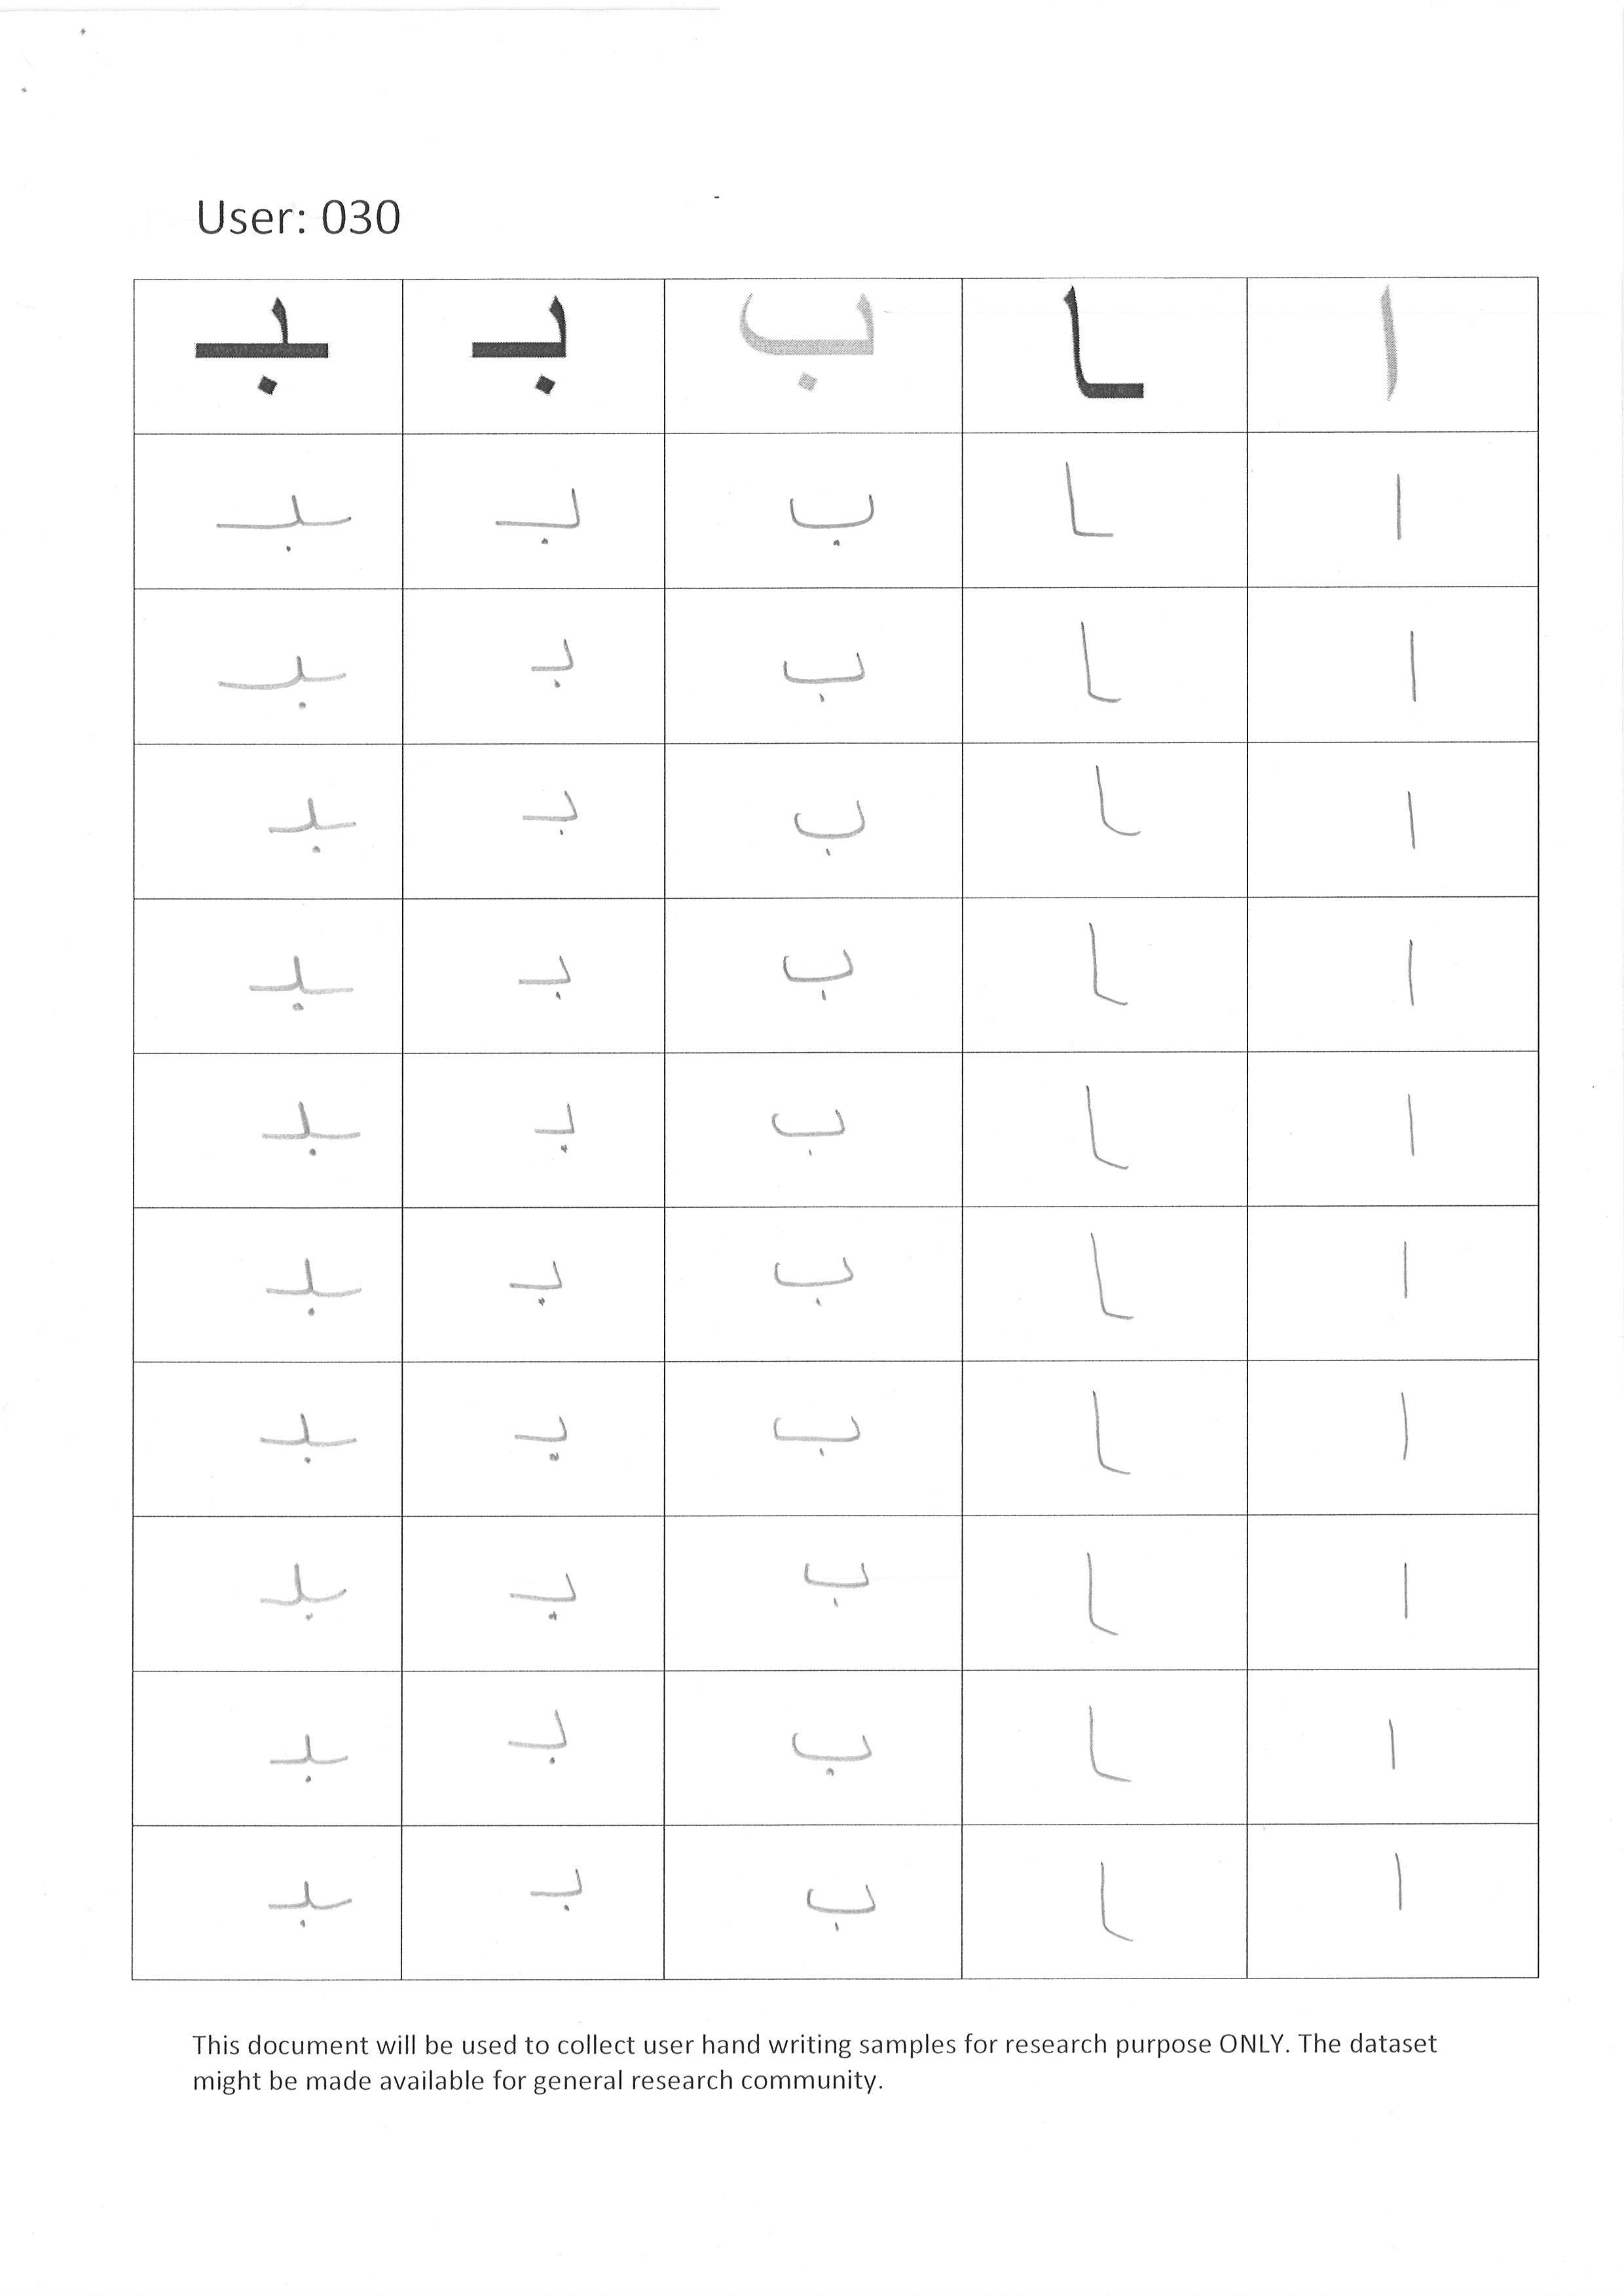 User: 030
ا ـا ب بـ ـبـ
ا ـا ب بـ ـبـ
ا ـا ب بـ ـبـ
ا ـا ب بـ ـبـ
ا ـا ب بـ ـبـ
ا ـا ب بـ ـبـ
ا ـا ب بـ ـبـ
ا ـا ب بـ ـبـ
ا ـا ب بـ ـبـ
ا ـا ب بـ ـبـ
ا ـا ب بـ ـبـ
This document will be used to collect user hand writing samples for research purpose ONLY. The dataset
might be made available for general research community.